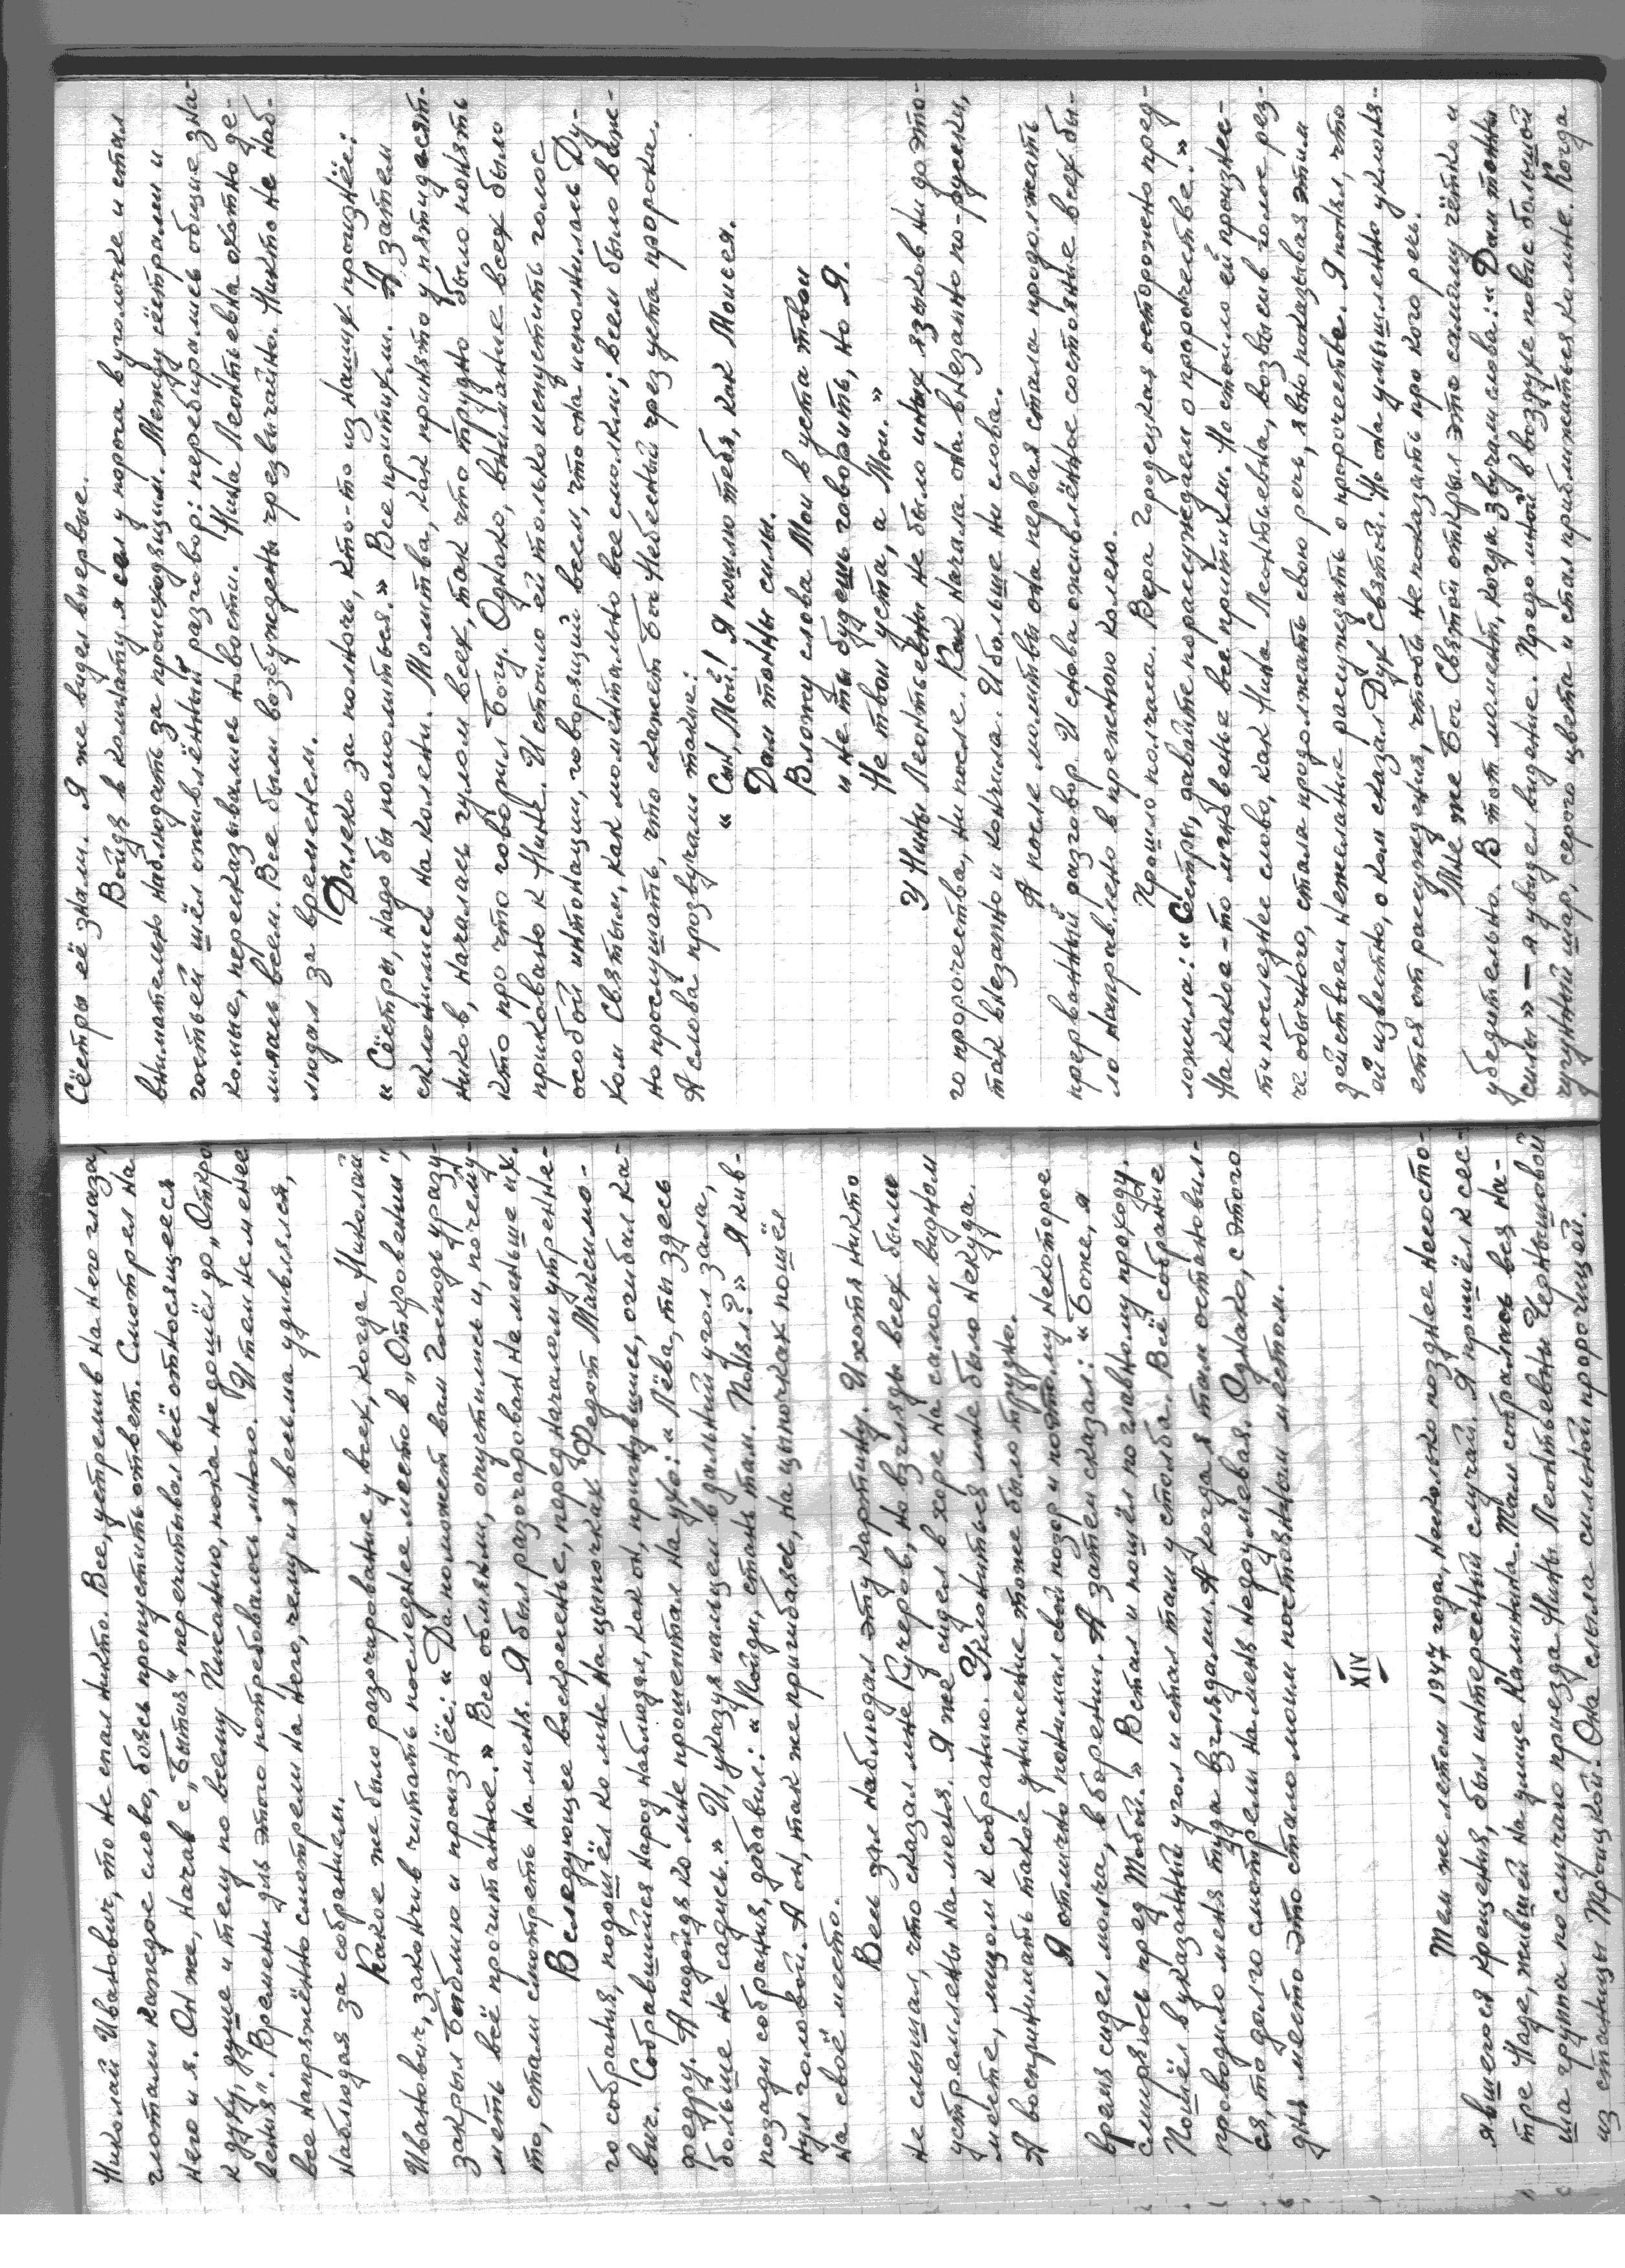 Николай Иванович, то не спал никто. Все, устремив на него глаза,
глотали каждое слово, боясь пропустить ответ. Смотрел на
него и я. Он же, начав с „Бытия", перечитывал всё относящееся
к духу, душе и телу по всему Писанию, пока не дошёл до „Откро
вения". Времени для этого потребовалось много. И тем не менее
все напряжённо смотрели на него, чему и я весьма удивлялся,
наблюдая за собранием.
Какое же было разочарование у всех, когда Николай
Иванович, закончив читать последнее место в „Откровении",
закрыл Библию и произнёс: „Да поможет вам Господь уразу-
меть всё прочитанное.» Все обмякли, опустились и, почему-
то, стали смотреть на меня. Я был разочарован не меньше их.
В следующее воскресенье, перед началом утренне-
го собрания, подошёл ко мне на цыпочках Федот Максимо-
вич. Собравшийся народ наблюдал, как он, пригнувшись, огибал ка-
федру. А подойдя ко мне прошептал на ухо: „Лёва, ты здесь
больше не садись.» И, указуя пальцем в дальний угол зала,
позади собрания, добавил: „Пойди, стань там. Понял?» Я кив-
нул головой. А он, так же пригибаясь, на цыпочках пошёл
на своё место.
Весь зал наблюдал эту картину. И хотя никто
не слышал, что сказал мне Кучеров, но взгляды всех были
устремлены на меня. Я же сидел в хоре на самом видном
месте, лицом к собранию. Уклониться мне было некуда.
А воспринимать такое унижение тоже было трудно.
Я отлично понимал свой позор и поэтому некоторое
время сидел молча, в борении. А затем сказал: „Боже, я
смиряюсь пред Тобой.» Встал и пошёл по главному проходу.
Пошёл в указанный угол и стал там у столба. Всё собрание
проводило меня туда взглядами. А когда я там остановил-
ся, то долго смотрели на меня недоумевая. Однако, с этого
дня место это стало моим постоянным местом.
XIV
Тем же летом 1947 года, несколько позднее несосто-
явшегося крещения, был интересный случай. Я пришёл к сес-
тре Наде, жившей на улице Калинина. Там собралась вся на-
ша группа по случаю приезда Нины Леонтьевны Чернышовой
из станицы Троицкой. Она слыла сильной пророчицей.
Сёстры её знали. Я же видел впервые.
Войдя в комнату я сел у порога в уголочке и стал
внимательно наблюдать за происходящим. Между сёстрами и
гостьей шёл оживлённый разговор: перебирались общие зна-
комые, пересказывались новости. Нина Леонтьевна охотно де-
лилась всем. Все были возбуждены чрезвычайно. Никто не наб-
людал за временем.
Далеко за полночь, кто-то из наших произнёс:
«Сёстры, надо бы помолиться.» Все притихли. А затем
склонились на колени. Молитва, как принято у пятидесят-
ников, началась гулом всех, так что трудно было понять
кто про что говорил Богу. Однако, внимание всех было
приковано к Нине. И стоило ей только испустить голос
особой интонации, говорящий всем, что она исполнилась Ду-
хом Святым, как моментально все смолкли; всем было важ-
но прослушать, что скажет Бог Небесный чрез уста пророка.
А слова прозвучали такие:
„Сын, Мой! Я пошлю тебя, как Моисея.
Дам тонны силы.
Вложу слова Мои в уста твои
и не ты будешь говорить, но Я.
Не твои уста, а Мои.»
У Нины Леонтьевны не было иных языков ни до это-
го пророчества, ни после. Как начала она внезапно по-русски,
так внезапно и кончила. И больше ни слова.
А после молитвы она первая стала продолжать
прерванный разговор. И снова оживлённое состояние всех бы-
ло направлено в прежнюю колею.
Прошло полчаса. Вера Городецкая осторожно пред-
ложила: „Сёстры, давайте порассуждаем о пророчестве.»
На какое-то мгновенье все притихли. Но стоило ей произнес-
ти последнее слово, как Нина Леонтьевна, возвысив голос рез-
че обычного, стала продолжать свою речь, явно показывая этим
действием нежелание рассуждать о пророчестве. Я понял, что
ей известно, о ком сказал Дух Святой. Но она умышленно уклоня-
ется от рассуждения, чтобы не показать про кого речь.
Мне же Бог Святой открыл это самому чётко и
убедительно. В тот момент, когда звучали слова: „Дам тонны
силы» — я увидел видение. Предо мной в воздухе повис большой
чугунный шар, серого цвета и стал приближаться ко мне. Когда